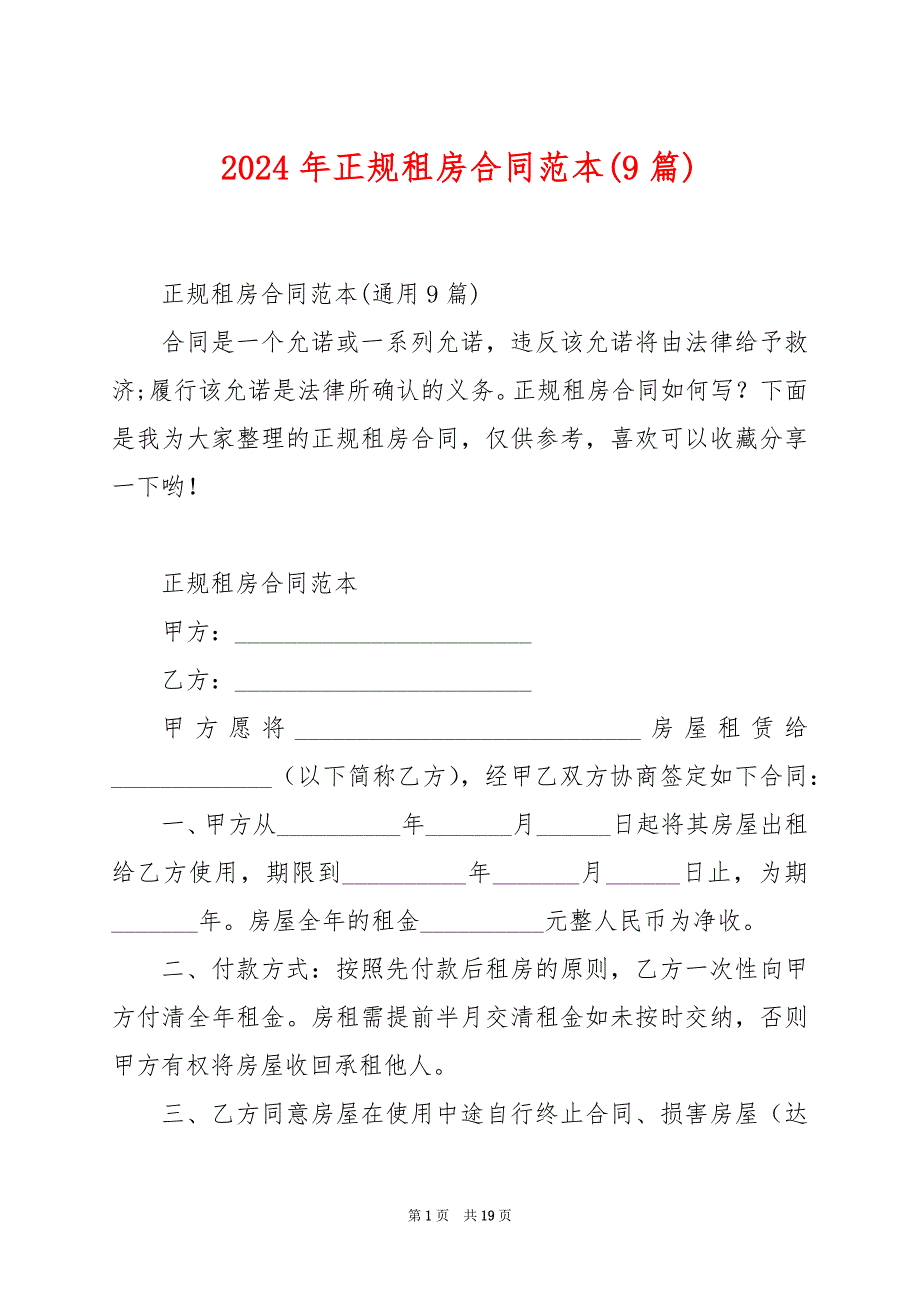 2024年正规租房合同范本(9篇)
正规租房合同范本(通用9篇)
合同是一个允诺或一系列允诺，违反该允诺将由法律给予救
济;履行该允诺是法律所确认的义务。正规租房合同如何写？下面
是我为大家整理的正规租房合同，仅供参考，喜欢可以收藏分享
一下哟！
正规租房合同范本
甲方：________________________
乙方：________________________
甲方愿将____________________________房屋租赁给
_____________（以下简称乙方），经甲乙双方协商签定如下合同：
一、甲方从__________年_______月______日起将其房屋出租
给乙方使用，期限到__________年_______月______日止，为期
_______年。房屋全年的租金__________元整人民币为净收。
二、付款方式：按照先付款后租房的原则，乙方一次性向甲
方付清全年租金。房租需提前半月交清租金如未按时交纳，否则
甲方有权将房屋收回承租他人。
三、乙方同意房屋在使用中途自行终止合同、损害房屋（达
第1页 共19页